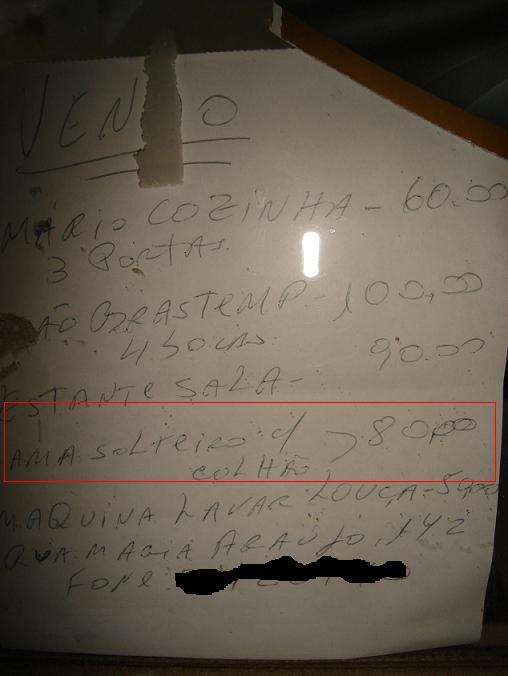 VENDO
MÁRIO COZINHA - 60.00
3 PORTAS.
ÃO BRASTEMP - 100,00
4 BOCAS
90.00
ESTANTE SALA -
AMA SOLTEIRO C/ > 80,00
COLHÃO
MAQUINA LAVAR LOUÇA - 50,00
RUA MARIA ARAUJO, 142
FONE